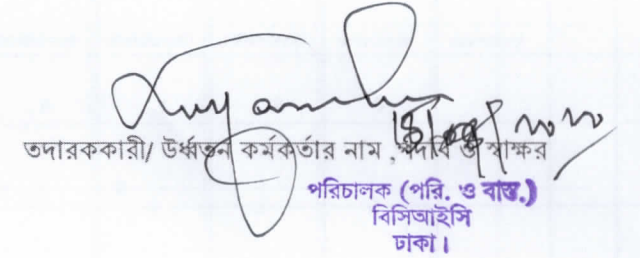 তদারককারী/ উর্ধ্বতন কর্মকর্তার নাম ,পদবি ও স্বাক্ষর
পরিচালক (পরি. ও বাস্ত.)
বিসিআইসি
ঢাকা।